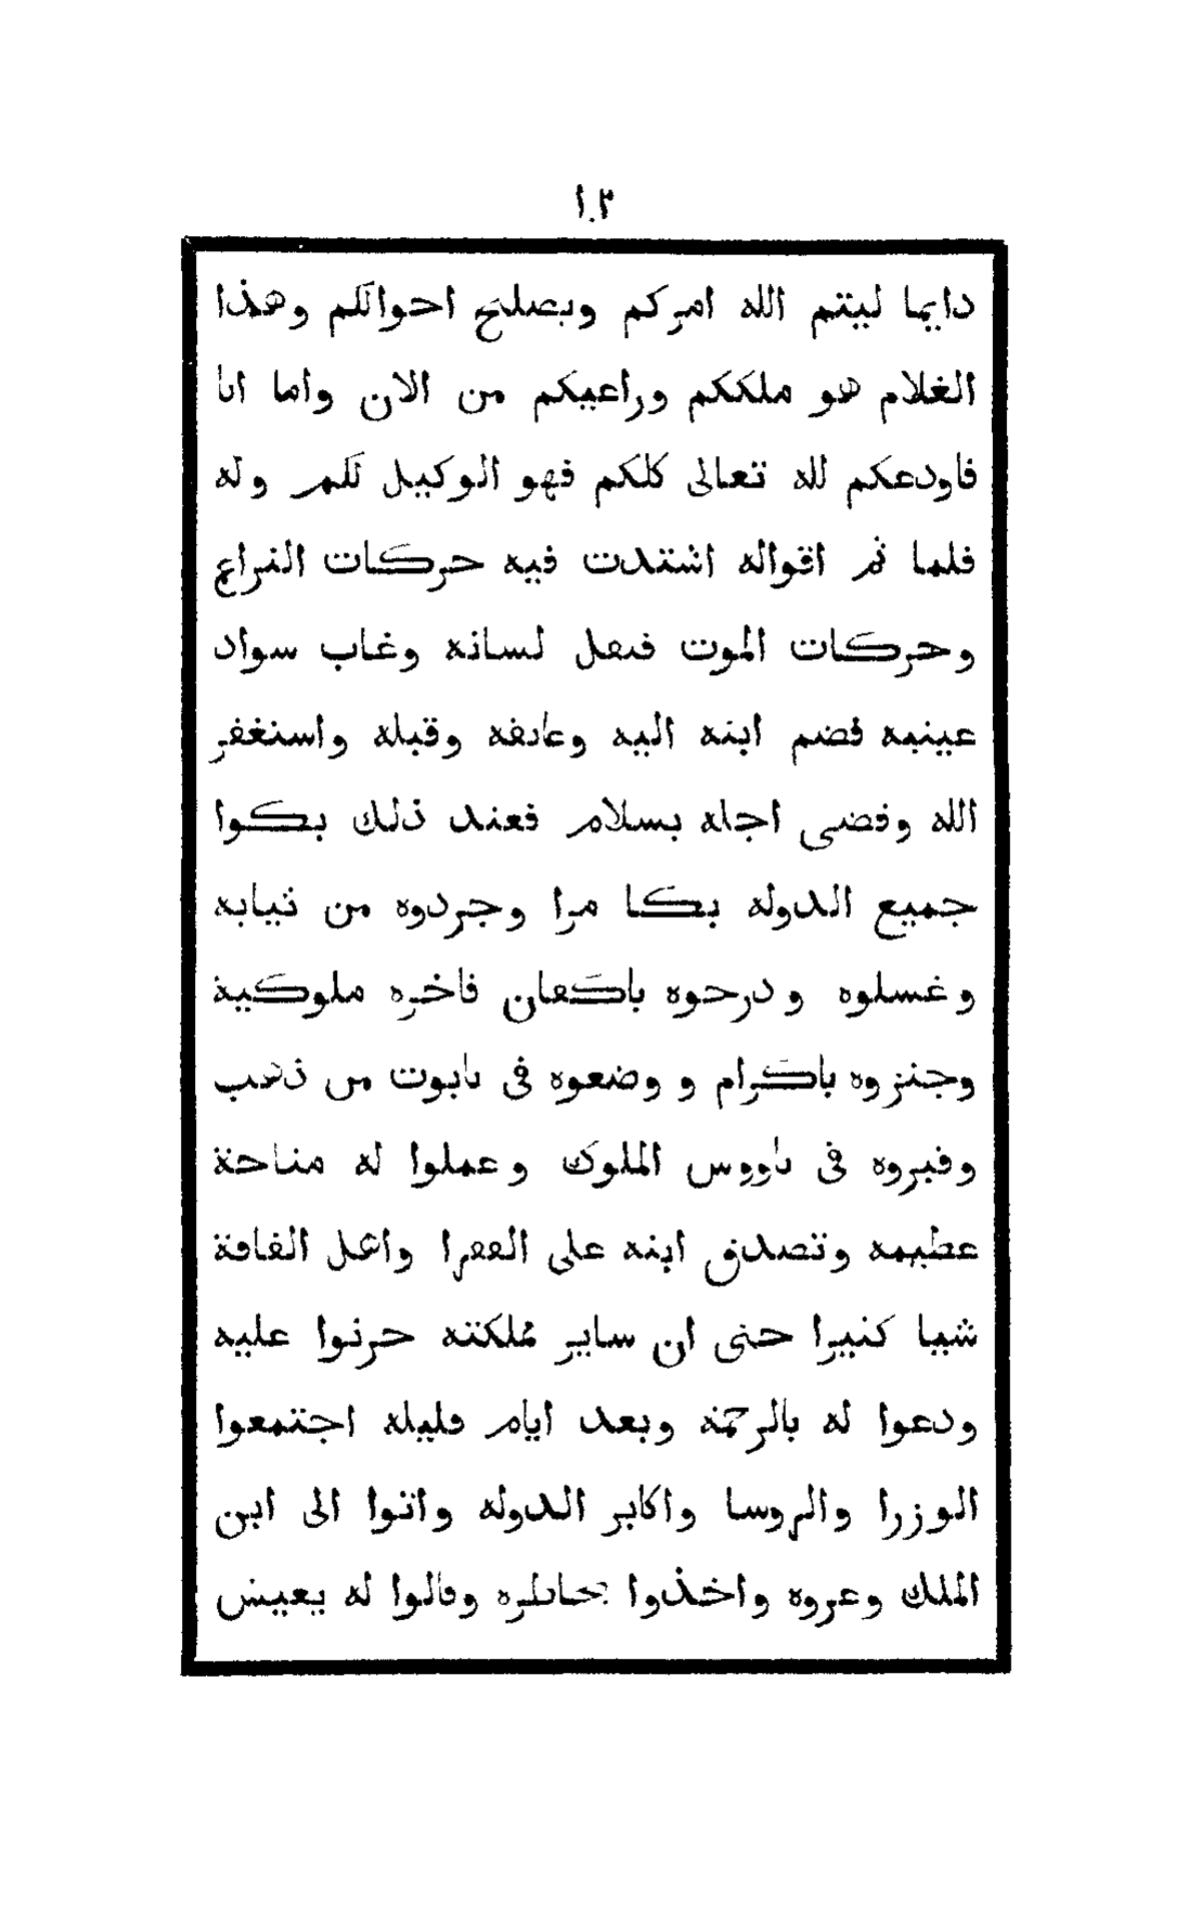 ١٠٢
دايما ليتم الله امركم ويصلح احوالكم وهذا
الغلام هو ملككم وراعيكم من الان واما انا
فاودعكم لله تعالى كلكم فهو الوكيل لكم وله
فلما تم اقواله اشتدت فيه حركات النزاع
وحركات الموت فثقل لسانه وغاب سواد
عينيه فضم ابنه اليه وعانقه وقبله واستغفر
الله وقضى اجله بسلام فعند ذلك بكوا
جميع الدوله بكا مرا وجردوه من ثيابه
وغسلوه ودرجوه باكفان فاخره ملوكية
وجنزوه باكرام و وضعوه فى تابوت من ذهب
وقبروه فى ناووس الملوك وعملوا له مناحة
عظيمه وتصدق ابنه على الفقرا واهل الفاقة
شيا كثيرا حتى ان ساير مملكته حزنوا عليه
ودعوا له بالرحمة وبعد ايام قليله اجتمعوا
الوزرا والروسا واكابر الدوله واتوا الى ابن
الملك وعزوه واخذوا بخاطره وقالوا له يعيش